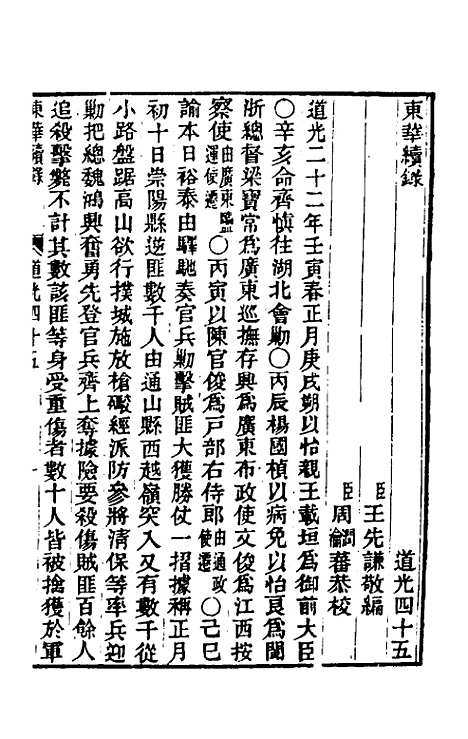 東華續錄
道光四十五
臣王先謙敬編
臣周潤蕃恭校
周瀹蕃恭校
道光二十二年壬寅春正月庚戌朔以怡親王載垣為御前大臣
○辛亥命齊慎往湖北會勦○丙辰楊國楨以病免以怡良為閩
浙總督梁寶常為廣東巡撫存興為廣東布政使文俊為江西按
察使由廣東鹽運使遷○丙寅以陳官俊為戶部右侍郎由通政使遷○己巳
諭本日裕泰由驛馳奏官兵勦擊賊匪大獲勝仗一摺據稱正月
初十日崇陽縣逆匪數千人由通山縣西越嶺突入又有數千從
小路盤踞高山欲行撲城施放槍礮經派防參將清保等率兵迎
勦把總魏鴻興奮勇先登官兵齊上奪據險要殺傷賊匪百餘人
追殺擊斃不計其數該匪等身受重傷者數十人皆被擒獲於軍
東華續錄 道光四十五 一